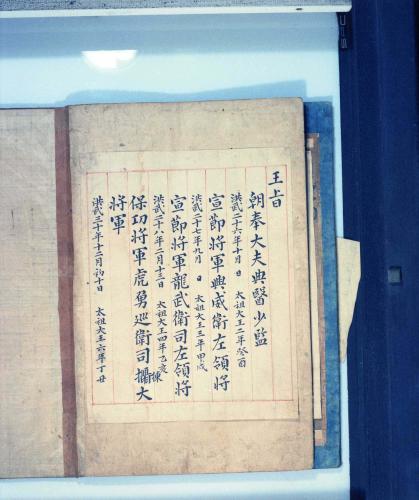 王旨
朝奉大夫典醫少監
洪武二十六年十月 日 太祖大王二年癸酉
宣節將軍興威衛左領將
洪武二十七年九月 日 太祖大王三年甲戌
宣節將軍龍武衛司左領將
洪武二十八年二月十三日 太祖大王四年乙亥
保功將軍虎勇巡衛司攝大
將軍
洪武三十年十二月初十日 太祖大王六年丁丑